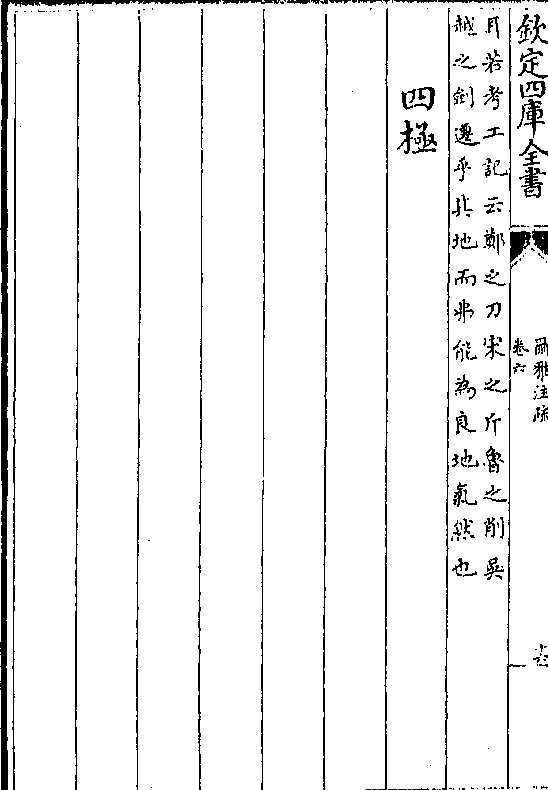 欽定四庫全書
爾雅注疏
卷六
月若考工記云鄭之刀宋之斤魯之削吳
越之劍遷乎其地而弗能為良地氣然也
四極